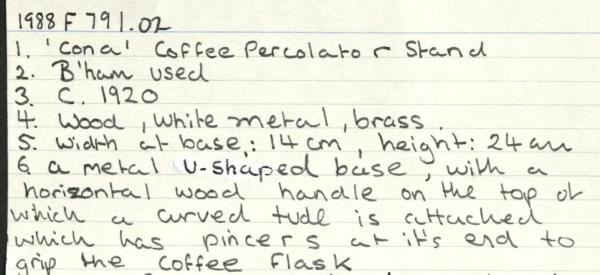 1988 F 791.02
1. 'Cona' Coffee Percolator Stand
2. B'ham used
3. C. 1920
4. Wood, white metal, brass.
5. width at base,: 14cm, height: 24cm
6 a metal U-shaped base, with a
horizontal wood handle on the top of
which a curved tude is attached
which has pincers at it's end to
grip the coffee flask